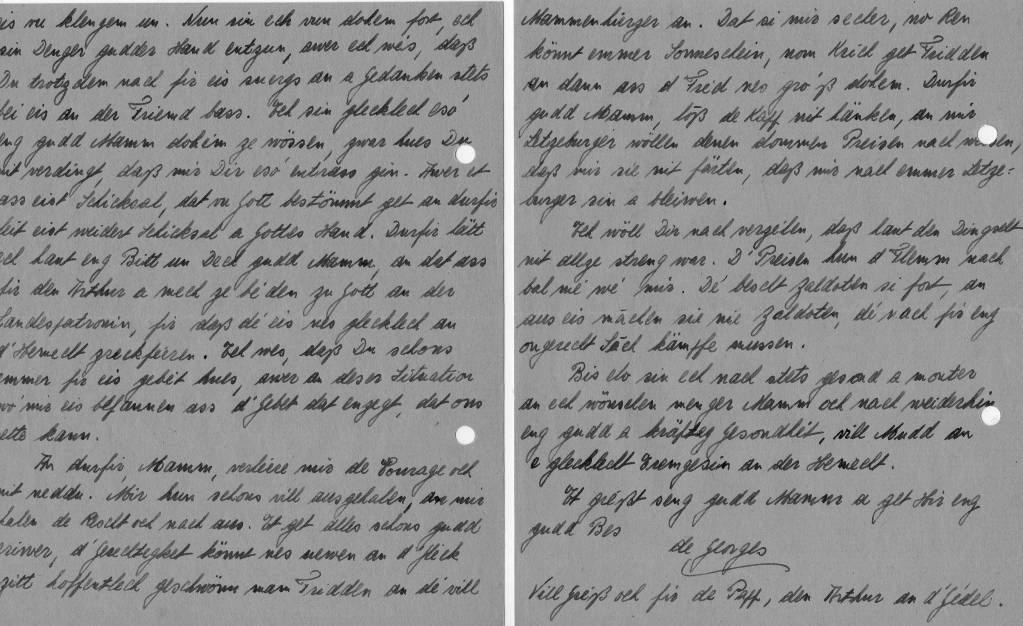 eis vu klengem un. Nun sin ech vun dohem fort, ech
sin Denger gudder Hand entzun, awer ech wés, daß
Du trotzdem nach fir eis suergs an a Gedanken stets
bei eis an der Friemd bass. Ech sin glecklech esó
eng gudd Mamm doheim ze wössen, zwar hues Du
nit verdingt, daß mir Dir esó entrass gin. Awer et
ass eist Schicksal, dat vu Gott bestömmt get an durfir
leit eist weidert Schicksal a Gottes Hand. Durfir hätt
ech haut eng Bitt un Dech gudd Mamm, an dat ass
fir den Arthur a mech ze béden zu Gott an der
Landespatronin, fir daß dé eis nes glecklech an
d'Hemecht zreckféeren. Ech wés, daß Du schons
emmer fir eis gebét hues, awer an deser Situation
wó mir eis befannen ass d'Gebet dat enzegt, dat ons
rette kann.
An durfir, Mamm, verléire mir de Courage och
nit neddu. Mir hun schons vill ausgehalen, an mir
halen de Rescht och nach aus. Et get alles schons gudd
eriwer, d'Gerechtegket könnt nes uewen an d'Gléck
zitt hoffentlech geschwönn mam Fridden an dé vill
Mammenhürger an. Dat si mir secher, no Ren
könnt emmer Sonneschein, nom Krich get Fridden
an dann ass d'Fréd nes gróß dohem. Durfir
gudd Mamm, lôß de Kapp nit hänken, an mir
Letzeburger wöllen denen dommen Preisen nach weisen,
daß mir sie nit färten, daß mir nach emmer Letze-
burger sin a bleiwen.
Ech wöll Dir nach verzeilen, daß haut den Dingscht
nit allze streng war. D'Preisen hun d'Flemm nach
bal mé wé mir. Dé bescht Zaldoten si fort, an
aus eis mächen sie nie Zaldoten, dé nach fir eng
ongerecht Sách kämpfe mussen.
Bis elo sin ech nach stets gesond a monter
an ech wönschen menger Mamm och nach weiderhin
eng gudd a kräfteg Gesondhét, vill Mudd an
e glecklecht Eremgesin an der Hemecht.
Et gréßt seng gudd Mamm a get Hir eng
gudd Bes
de Georges
Vill Gréß och fir de Papp, den Arthur an d'Gédel.